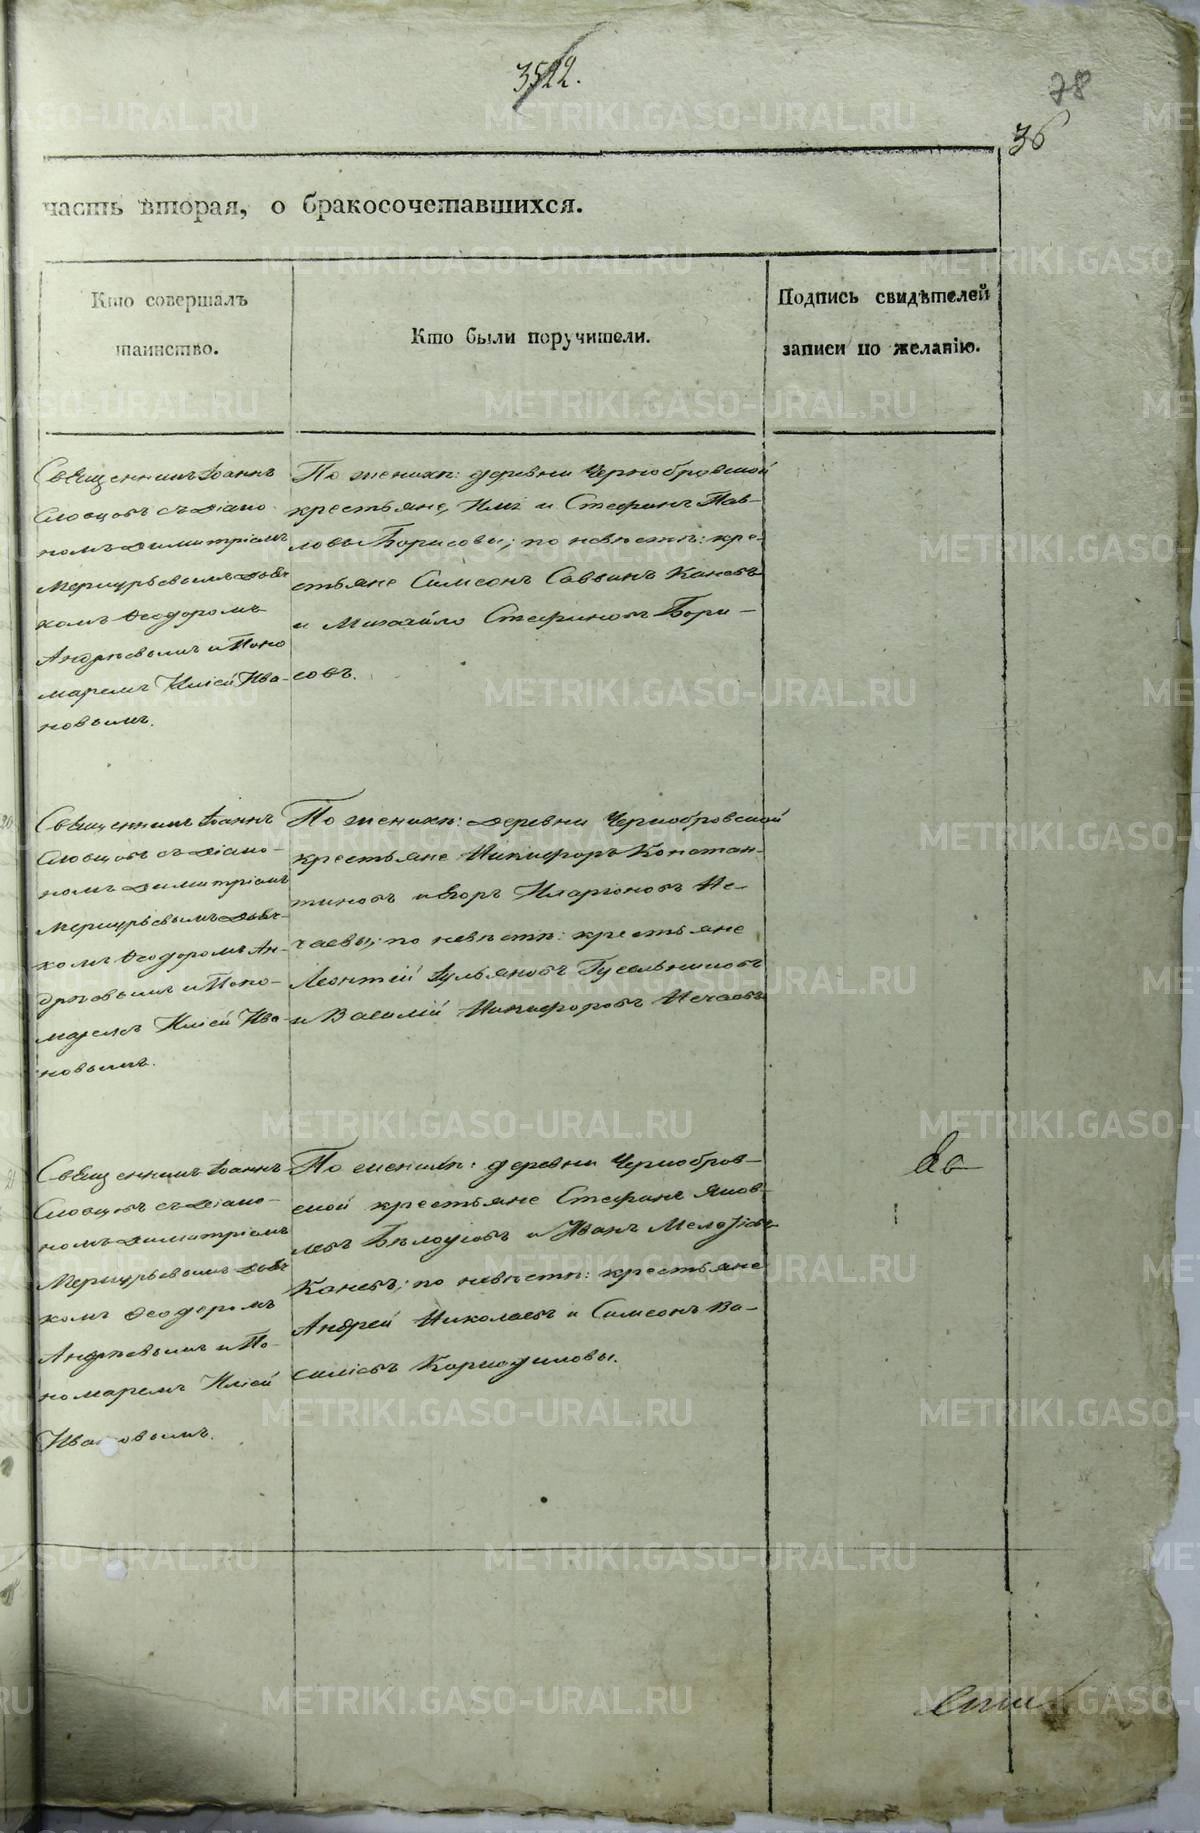 3522.
78
36
часть вторая, о бракосочетавшихся.
Кто совершалъ
таинство.
Кто были поручители.
Подпись свидѣтелей
записи по желанію.
Священникъ Іоаннъ
Словцовъ съ Діако-
номъ Димитріемъ
Меркурьевымъ Дьяч-
комъ Ѳеодоромъ
Андреевымъ и Поно
маремъ Иліей Ива-
новымъ.
По женихѣ: деревни Чернобровской
крестьяне, Илья и Стефанъ Пав-
ловы Борисовы; по невѣстѣ: кре-
стьяне Симеонъ Саввинъ Каневъ
и Михайло Стефановъ Бори-
совъ.
Священникъ Іоаннъ
Словцовъ съ Діако-
номъ Димитріемъ
Меркурьевымъ Дьяч-
комъ Ѳеодоромъ Ан-
дреевымъ и Поно-
маремъ Иліей Ива-
новымъ.
По женихѣ: деревни Чернобровской
крестьяне Никифоръ Констан-
тиновъ и Егоръ Иларіоновъ Не-
чаевы; по невѣстѣ: крестьяне
Леонтій Ульяновъ Гусельниковъ
и Василій Никифоровъ Нечаевъ
Священникъ Іоаннъ
Словцовъ съ Діако-
номъ Димитріемъ
Меркурьевымъ Дьяч
комъ Ѳеодоромъ
Андреевымъ и По-
номаремъ Иліей
Ивановымъ.
По женихѣ: деревни Чернобров-
ской крестьяне Стефанъ Яков-
левъ Бѣлоусовъ и Иванъ
Каневъ; по невѣстѣ: крестьяне
Андрей Николаевъ и Симеонъ Ва-
силіевъ Кармодиловы.
METRIKI.GASO-URAL.RU